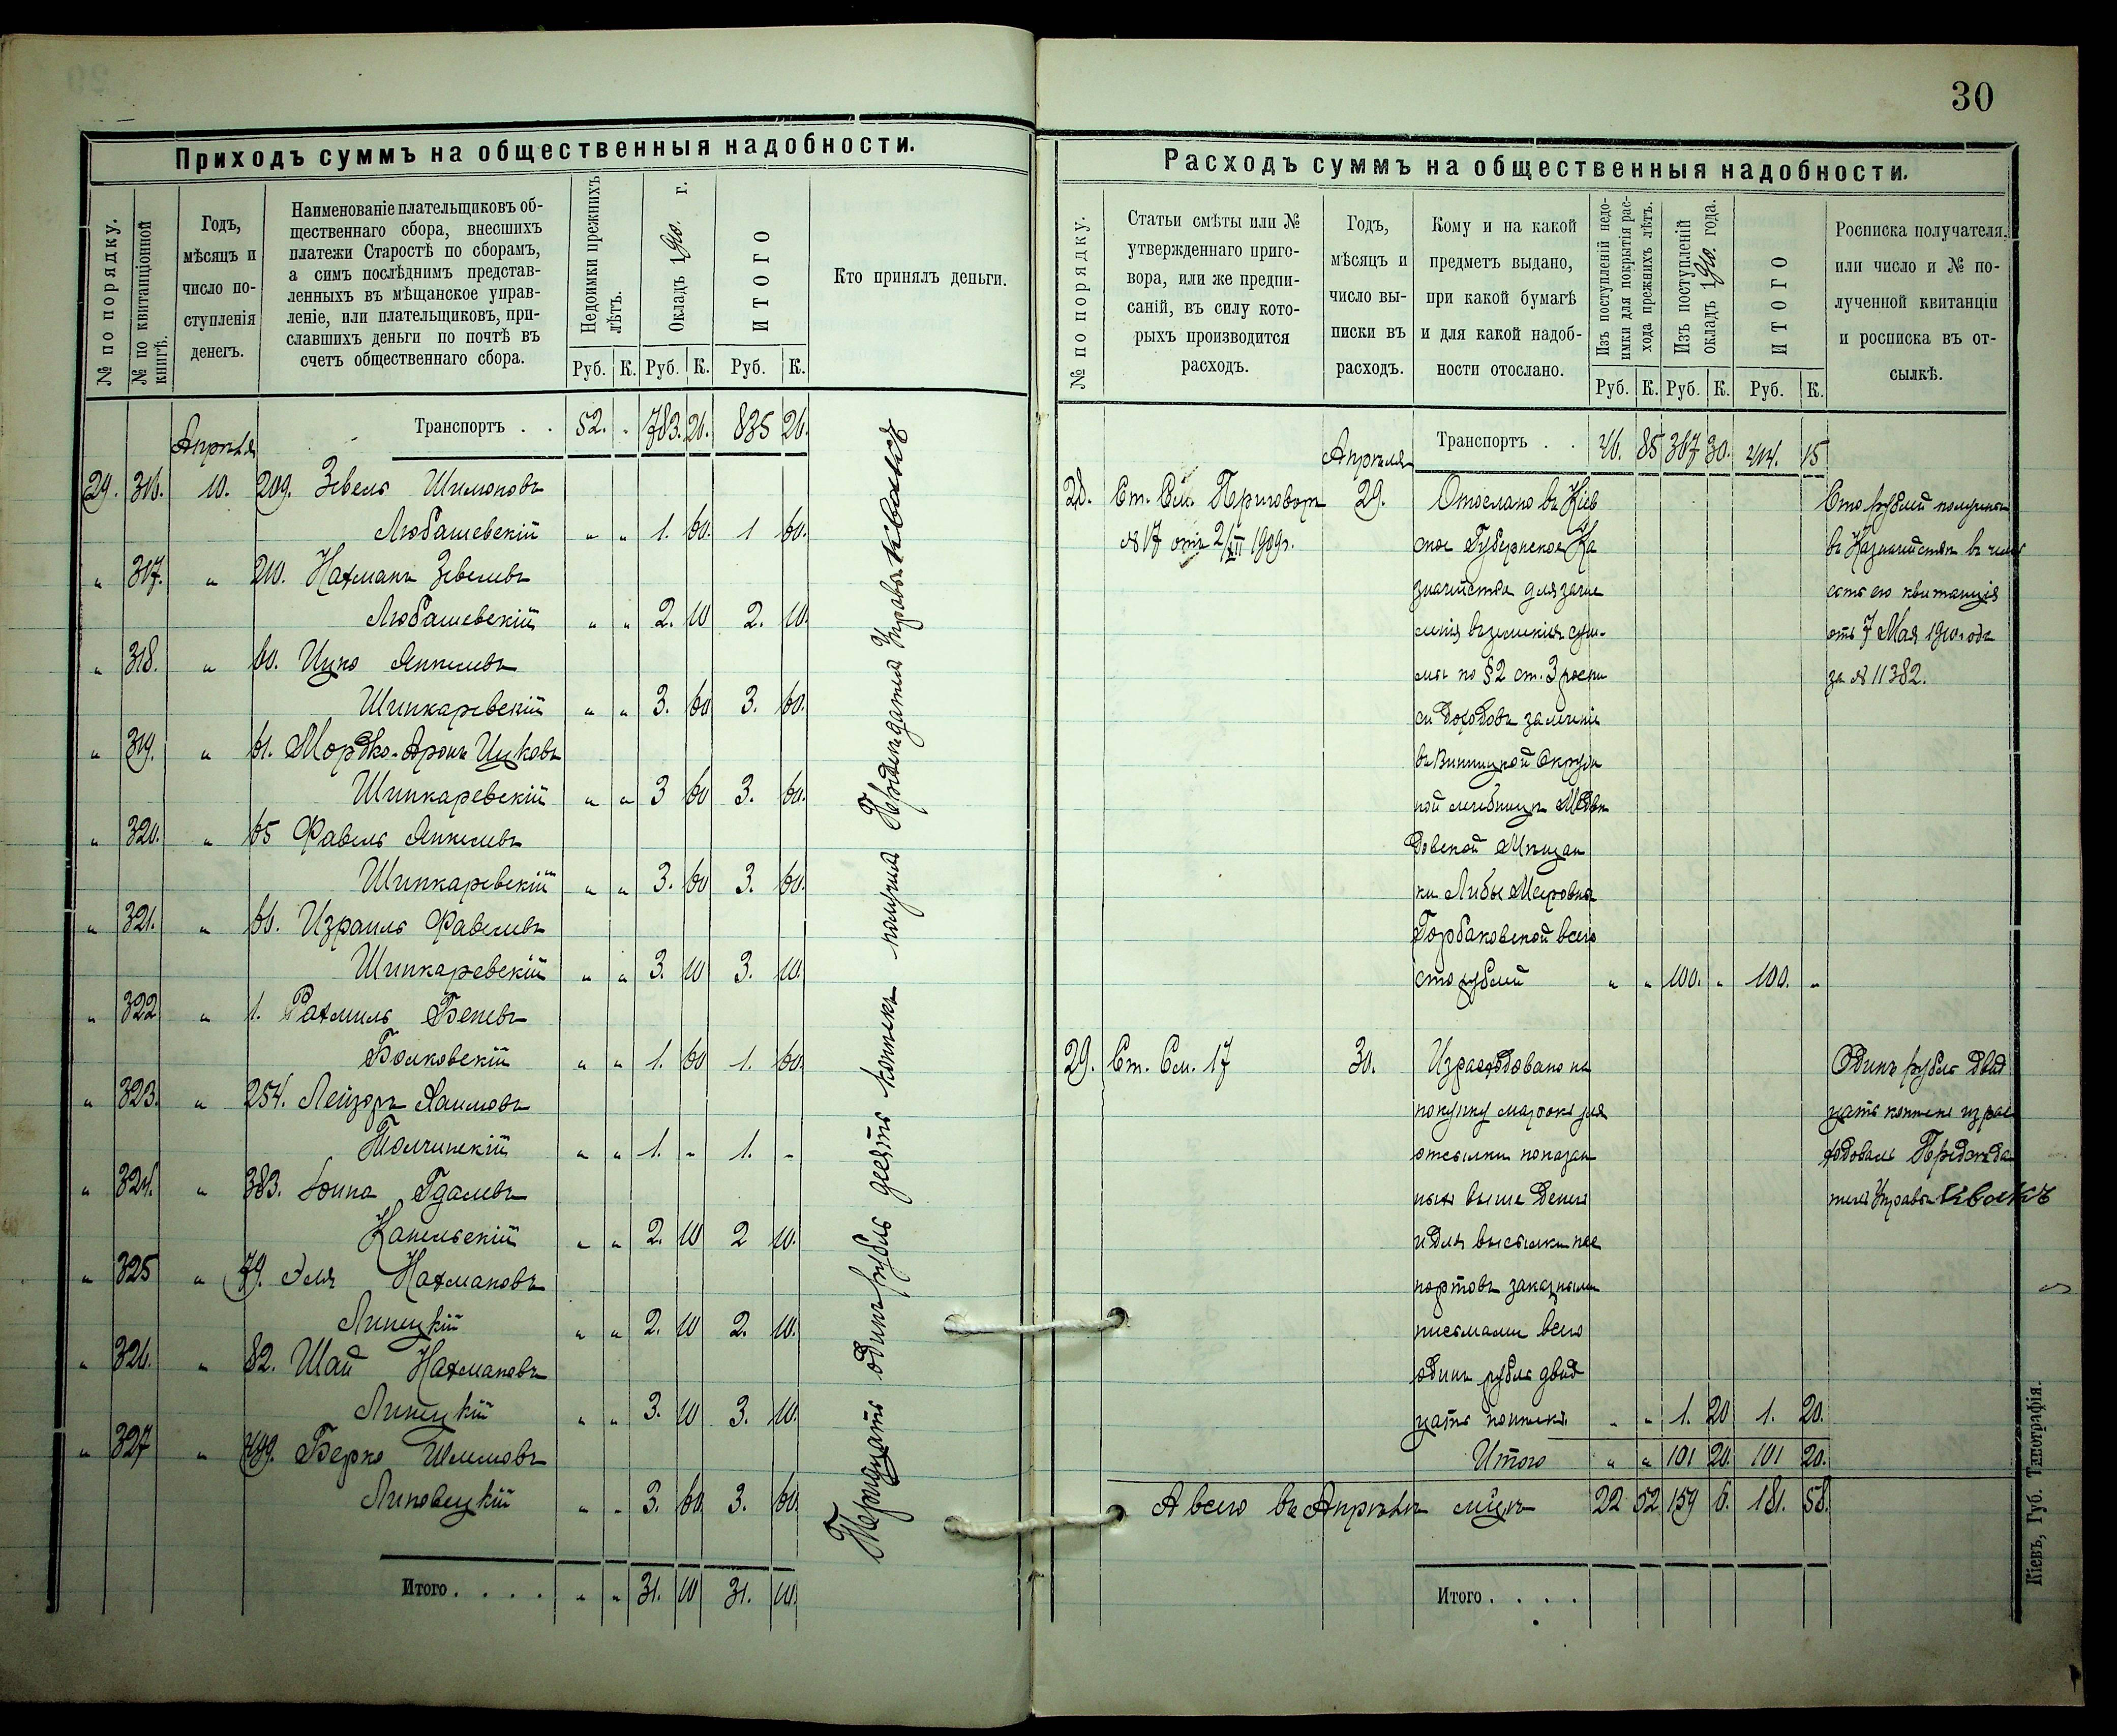 30
Приходъ суммъ на общественныя надобности.
№ по порядку.
№ по квитанціонной книгѣ.
Годъ, мѣсяцъ и число поступленія денегъ.
Наименованіе плательщиковъ об-
щественнаго сбора, внесшихъ
платежи Старостѣ по сборамъ,
а симъ послѣднимъ представ-
ленныхъ въ мѣщанское управ-
леніе, или плательщиковъ, при-
славшихъ деньги по почтѣ въ
счетъ общественнаго сбора.
Недоимки прежнихъ лѣтъ.
Окладъ 1910. г.
ИТОГО
Кто принялъ деньги.
Руб. К. Руб. К. Руб. К.
Апрѣля
Транспортъ . . 52. „ 783. 26. 835 26.
29. 316. 10. 209. Зевель Шимоновъ
Любашевскій „ „ 1. 60. 1 60.
„ 317. „ 210. Нахманъ Зевелевъ
Любашевскій „ „ 2. 10 2. 10.
„ 318. „ 60. Ицко Янкелевъ
Шинкаревскій „ „ 3. 60 3. 60.
„ 319. „ 61. Мордко-Аронъ Ицковъ
Шинкаревскій „ „ 3 60 3. 60.
„ 320. „ 65 Фавель Янкелевъ
Шинкаревскій „ „ 3. 60 3. 60.
„ 321. „ 66. Израиль Фавелевъ
Шинкаревскій „ „ 3. 10 3. 10.
„ 322 „ 1. Рахмиль Беневъ
Волковскій „ „ 1. 60 1. 60.
„ 323. „ 254. Лейзоръ Хаимовъ
Толчинскій „ „ 1. „ 1. „
„ 324. „ 383. Іоина Гдалевъ
Капельскій „ „ 2. 10 2 10.
„ 325 „ 79. Эля Нахмановъ
Липецкій „ „ 2. 10 2. 10.
„ 326. „ 82. Шая Нахмановъ
Липецкій „ „ 3. 10 3. 10.
„ 327 „ 499. Берко Шлемовъ
Липовецкій „ „ 3. 60. 3. 60.
Итого . . . . „ „ 31. 10 31. 10.
Тридцать одинъ рубль десять копѣекъ получилъ Предсѣдатель Управы
Расходъ суммъ на общественныя надобности.
№ по порядку.
Статьи смѣты или №
утвержденнаго приго-
вора, или же предпи-
саній, въ силу кото-
рыхъ производится
расходъ.
Годъ,
мѣсяцъ и
число вы-
писки въ
расходъ.
Кому и на какой
предметъ выдано,
при какой бумагѣ
и для какой надоб-
ности отослано.
Изъ поступленій недо-
имки для покрытія рас-
хода прежнихъ лѣтъ.
Изъ поступленій
окладъ 1910. года.
ИТОГО
Росписка получателя,
или число и № по-
лученной квитанціи
и росписка въ от-
сылкѣ.
Руб. К. Руб. К. Руб. К.
Апрѣля
Транспортъ . . 46. 85 367 30. 414. 15
28. Ст. См. Приговоръ 29. Отослано въ Кіев
№ 17 отъ 2/XII 1909 г. ское Губернское Ка
значейство для зачис
ленія въ земскія сум-
мы по § 2 ст. 3 роспи
си доходовъ за леченіе
въ Винницкой Окруж
ной лечебницѣ Медвѣ
довской Мѣщан
ки Либы Мееровны
Горбаковской всего
сто рублей „ „ 100. „ 100. „
Сто рублей получены
въ Казначействѣ въ чемъ
есть его квитанція
отъ 7 Мая 1910 года
за № 11382.
29. Ст. См. 17 30. Израсходовано на
покупку марокъ для
отсылки показан
ныхъ выше денегъ
и для высылки пас
портовъ заказными
письмами всего
одинъ рубль двад
цать копѣекъ „ „ 1. 20 1. 20.
Одинъ рубль двад
цать копѣекъ израс
ходовалъ Предсѣда
тель Управы
Итого „ „ 101 20. 101 20.
А всего въ Апрѣлѣ м-цѣ 22 52 159 6. 181. 58.
Итого . . . .
Кіевъ, Губ. Типографія.